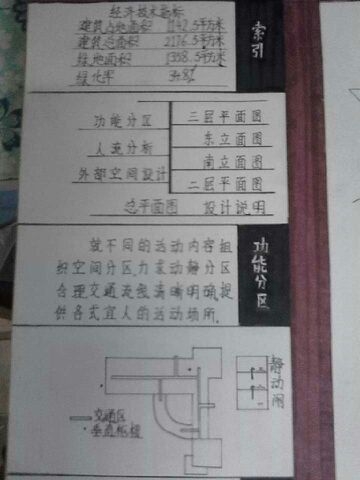 经济技术指标
建筑占地面积 1142.5平方米
建筑总面积 2176.5平方米
绿地面积 1358.5平方米
绿化率 34.8%
索引
功能分区
人流分析
外部空间设计
三层平面图
东立面图
南立面图
二层平面图
总平面图 设计说明
就不同的活动内容组
织空间分区,力求动静分区
合理交通流线清晰明确,提
供各式宜人的活动场所.
功能分区
静
动
闹
交通区
垂直枢纽